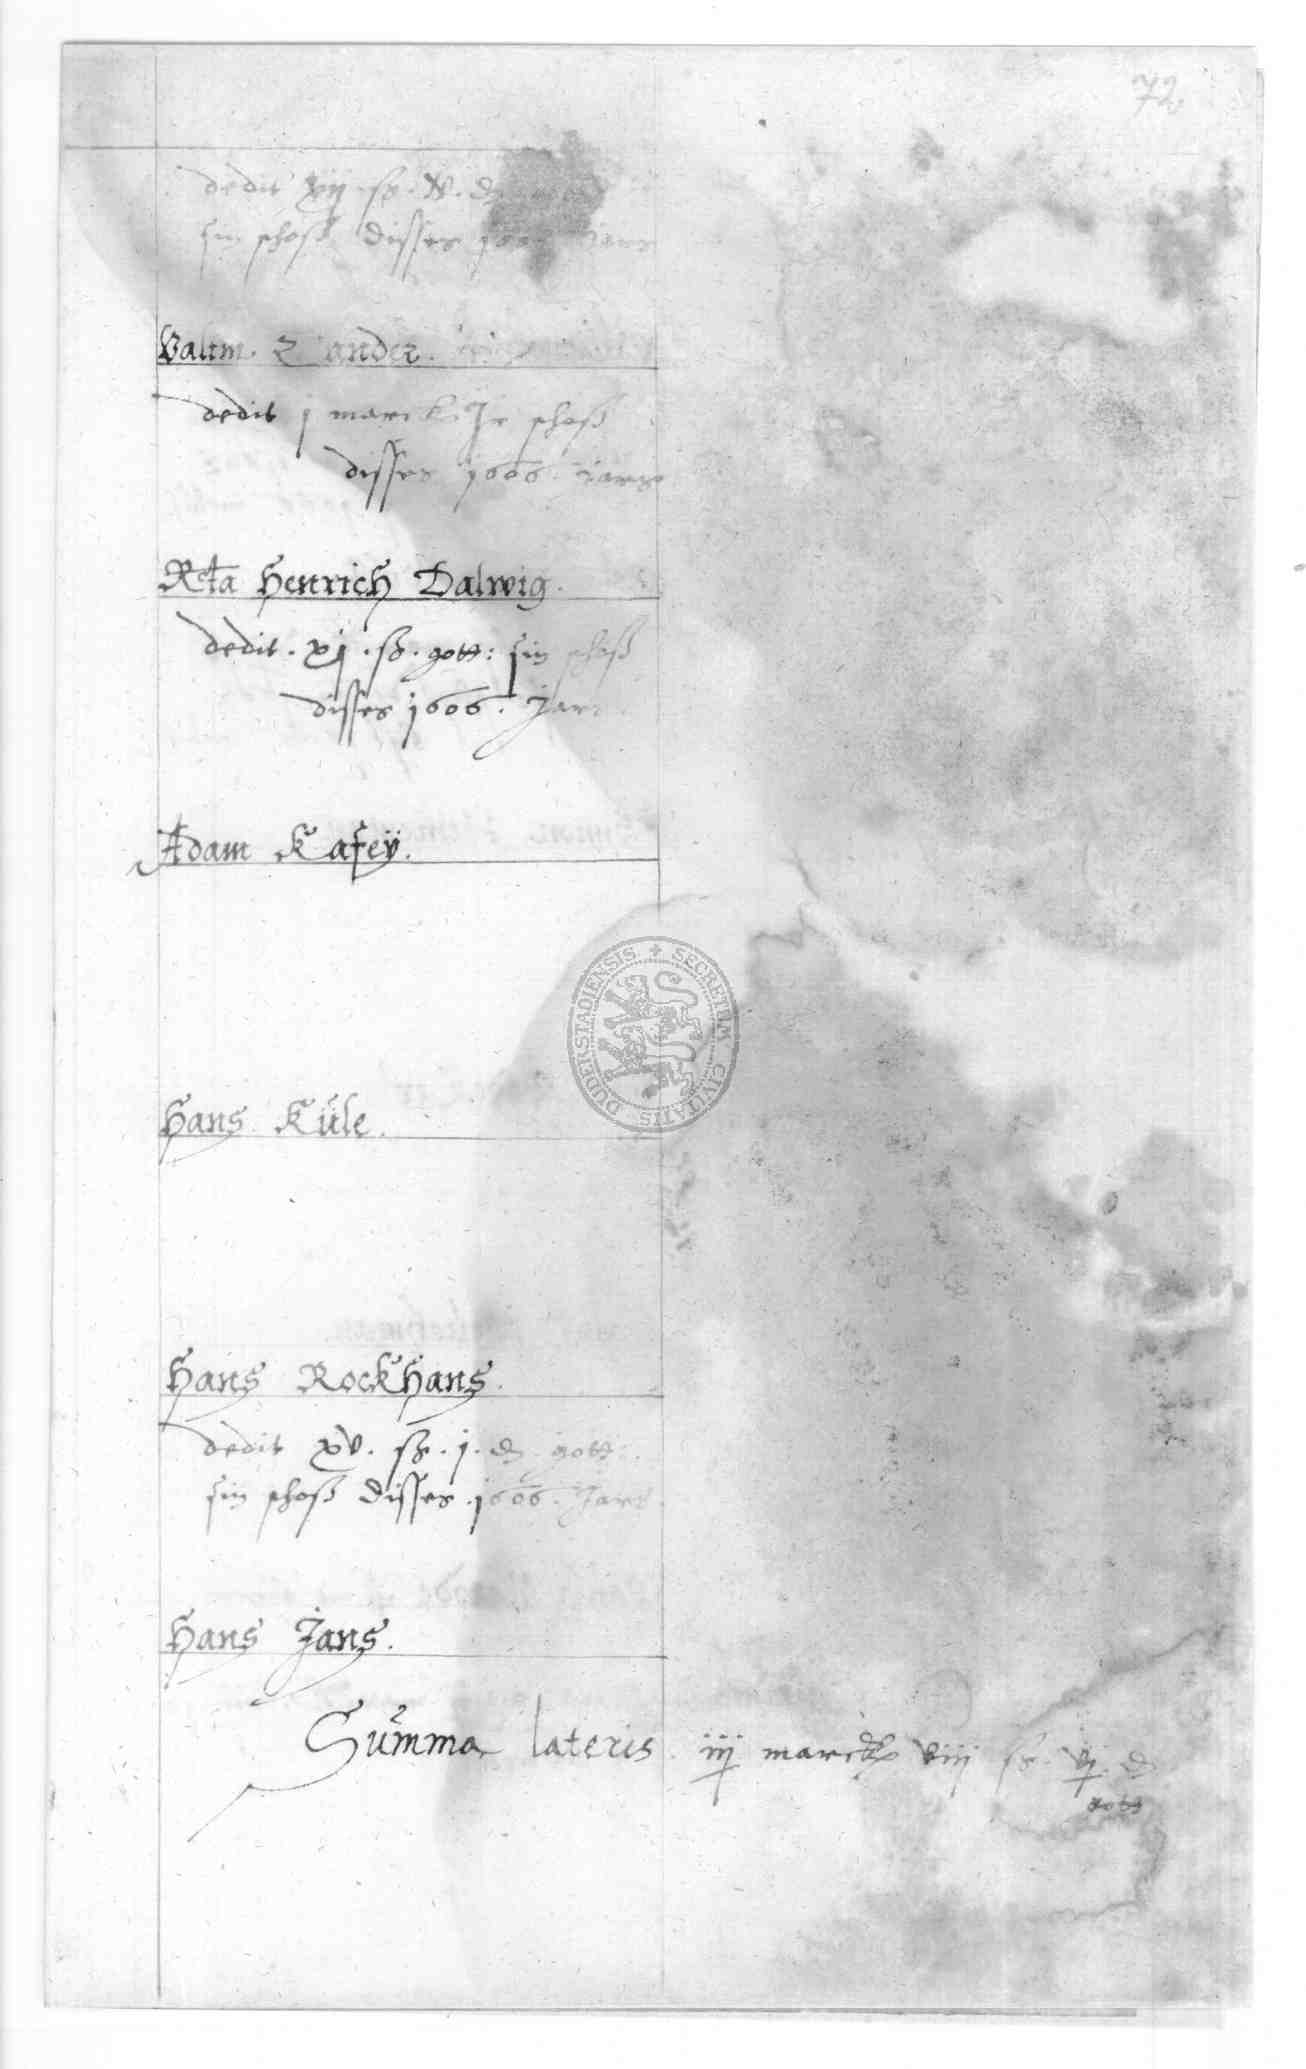 72
dedit xij . sß . v . d
sin schoß disses 160 Jars
Valtin ander.
dedit j marck Jr schoß
disses 1606 Jars
Rcta Henrich Dalwig.
dedit . xj . sß . gott: sin schoß
disses 1606. Jars
Adam Kafeÿ.
SECRETUM CIVITATIS DUDERSTADIENSIS
Hans Küle.
Hans Rockhans.
dedit xv. sß. j. d gott:
sin schoß disses . 1606. Jars.
Hans Jans.
Summa lateris iij marck viij sß. vj d
gott